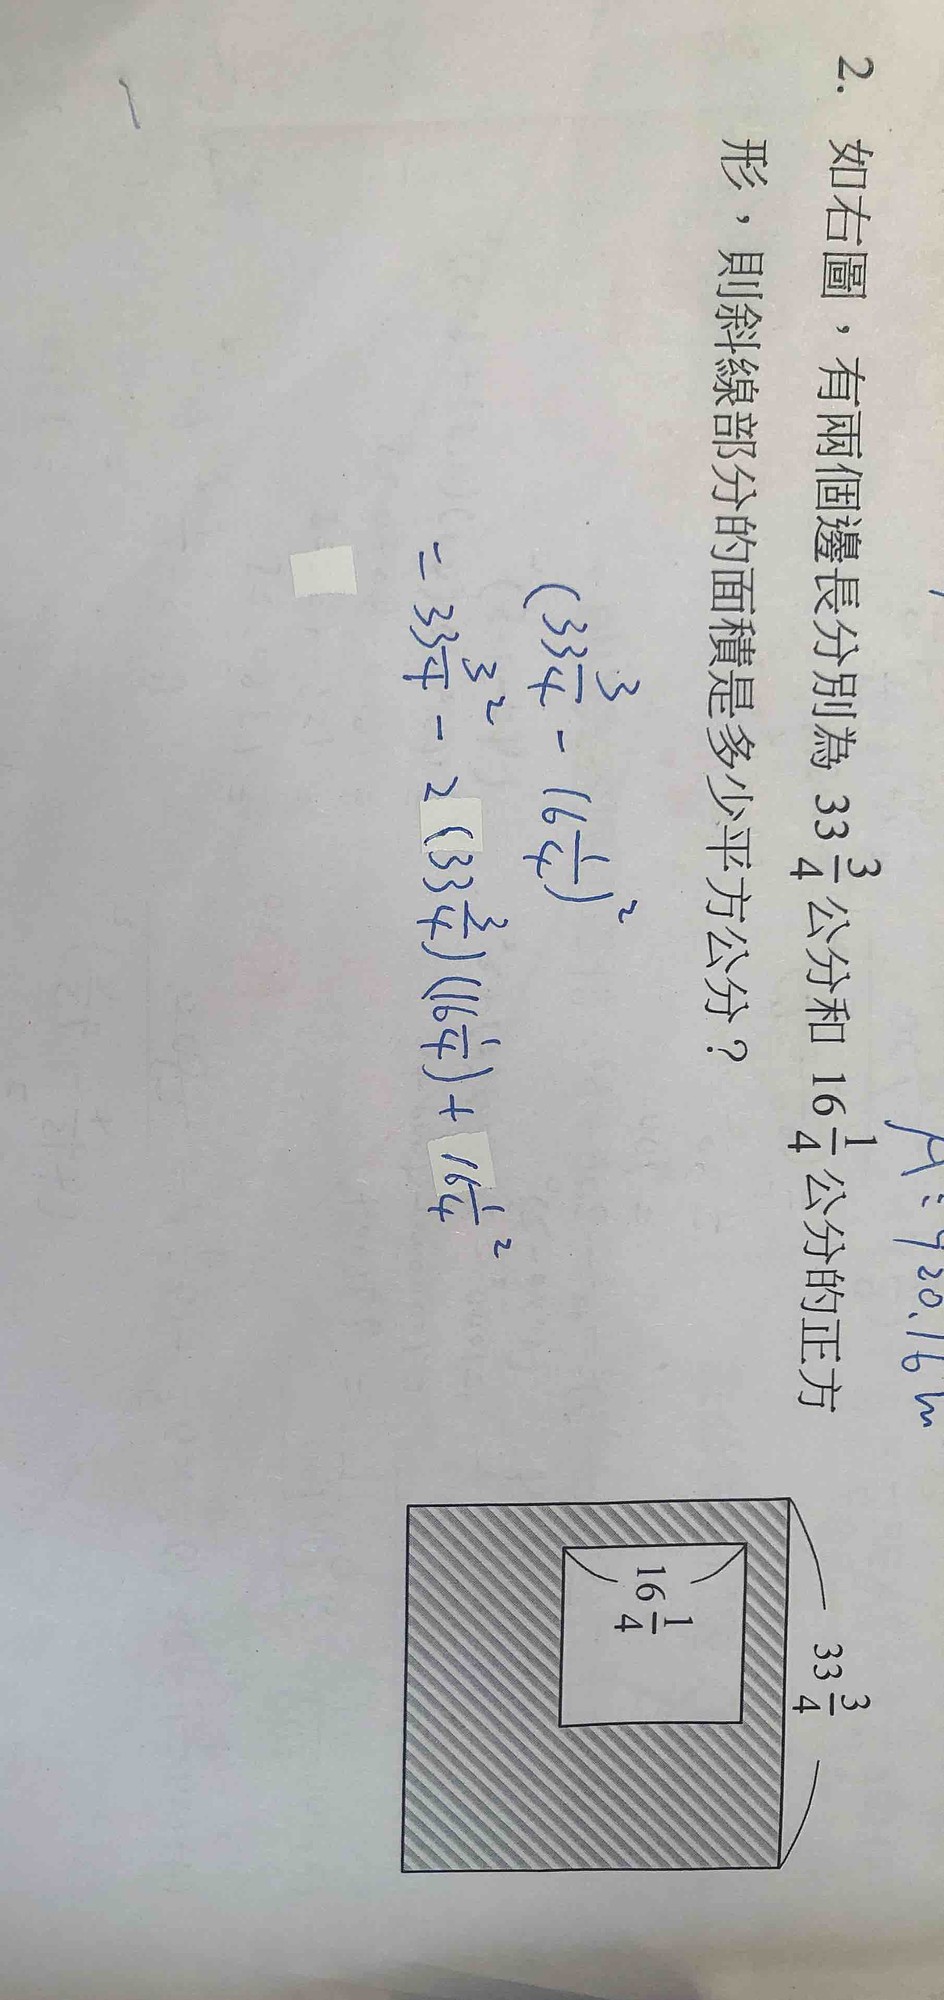 A:920.16
2. 如右圖，有兩個邊長分別為 33 3/4 公分和 16 1/4 公分的正方
形，則斜線部分的面積是多少平方公分？
33 3/4
16 1/4
(33 3/4 - 16 1/4)²
= 33 3/4² - 2(33 3/4)(16 1/4) + 16 1/4²